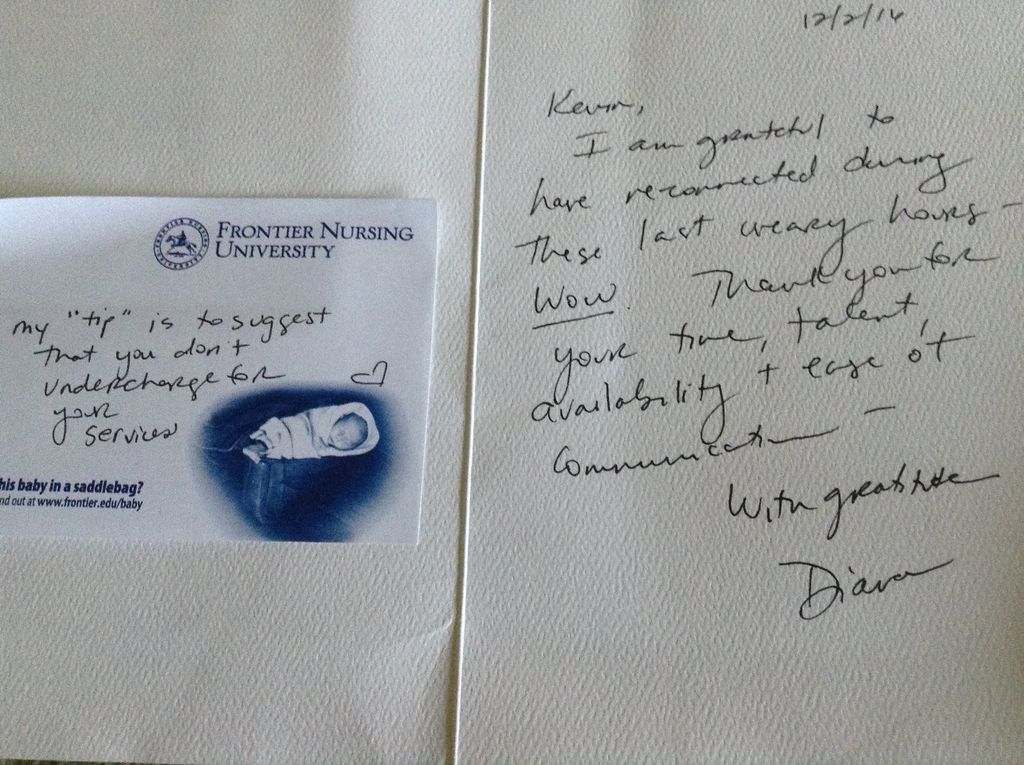 FRONTIER NURSING
UNIVERSITY
my "tip" is to suggest
that you don't
undercharge for
your
services
his baby in a saddlebag?
nd out at www.frontier.edu/baby
12/2/14
Kevin,
I am grateful to
have reconnected during
these last weary hours –
Wow. Thank you for
your time, talent,
availability + ease of
communication –
With gratitude
Diana